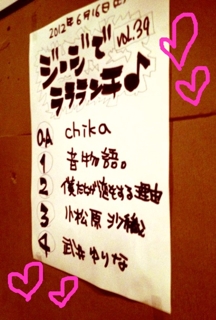 2012年6月16日(土)
ジージで vol.39
ラララランチ♪
O.A chika
1 音物語。
2 僕たちが恋をする理由
3 小松原沙織
4 武井ゆりな